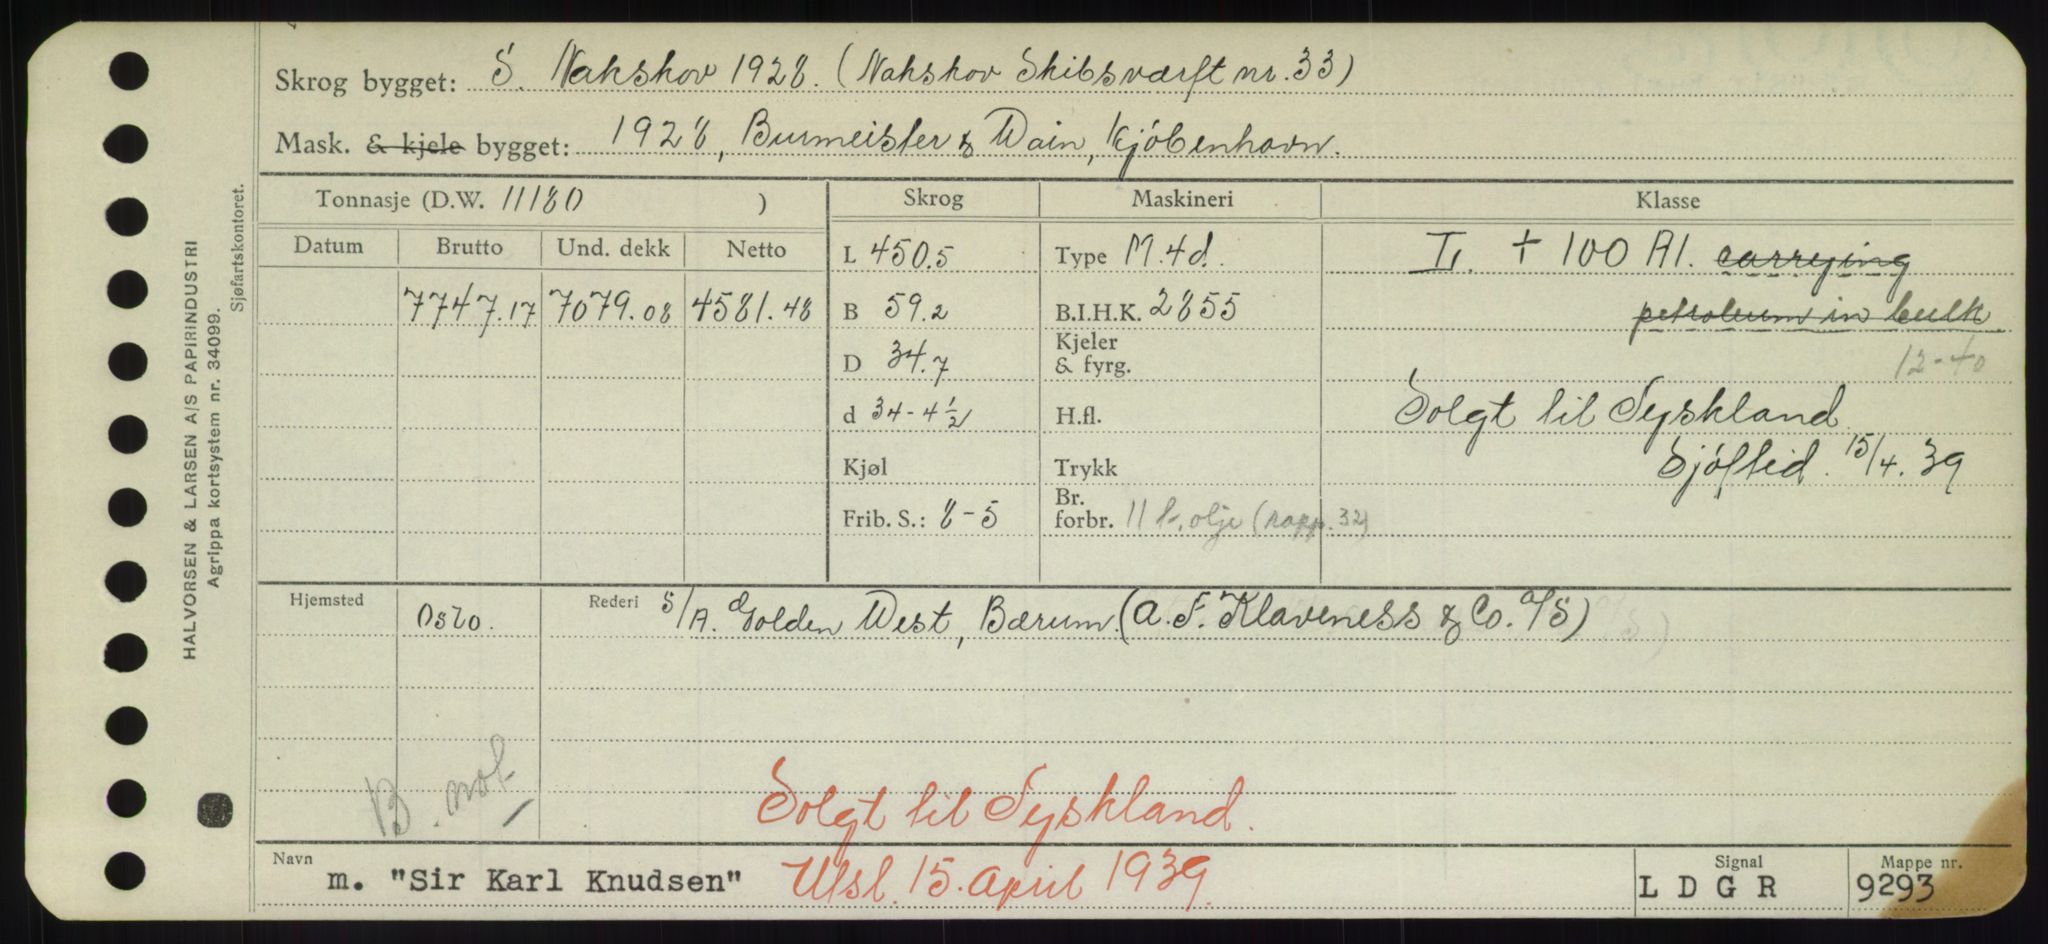 Skrog bygget: S. Nakskov 1928. (Nakskov Skibsværft nr. 33)
Mask. & kjele bygget: 1928, Burmeister & Wain, Kjöbenhavn.
Tonnasje (D.W. 11180 )
Skrog
Maskineri
Klasse
Datum
Brutto
Und. dekk
Netto
7747.17
7079.08
4581.48
L 450.5
B 59.2
D 34.7
d 34-4½
Kjøl
Frib. S.: 8-5
Type M.4d.
B.I.H.K. 2855
Kjeler
& fyrg.
H.fl.
Trykk
Br.
forbr. 11 t. olje (rapp. 32)
L. + 100 A1. carrying
petroleum in bulk
12-40
Solgt til Tyskland
Sjöftid. 15/4. 39
Hjemsted
Oslo.
Rederi
S/A. Golden West, Bærum. (A. F. Klaveness & Co. A/S)
B. not
Solgt til Tyskland.
Navn
m. "Sir Karl Knudsen"
Utsl. 15. April 1939.
Signal
L D G R
Mappe nr.
9293
HALVORSEN & LARSEN A/S PAPIRINDUSTRI
Agrippa kortsystem nr. 34099.
Sjøfartskontoret.